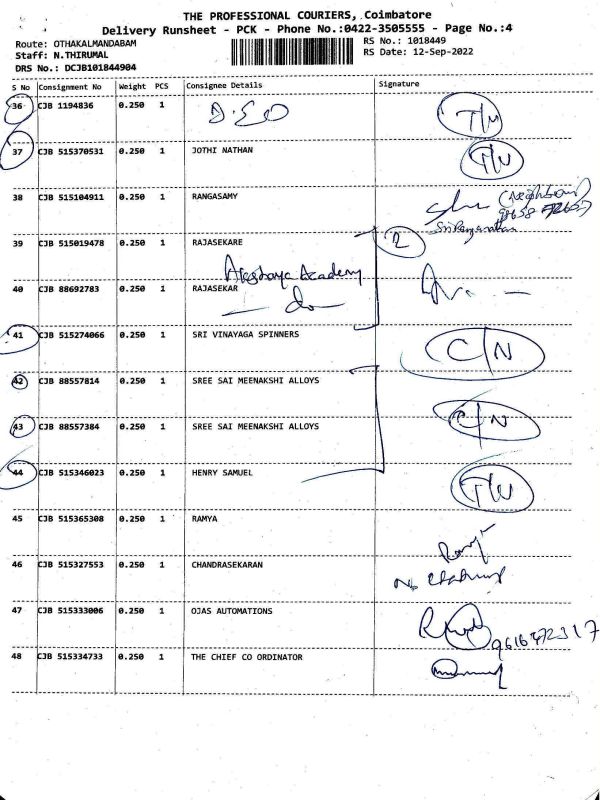 THE PROFESSIONAL COURIERS, Coimbatore
Delivery Runsheet - PCK - Phone No.:0422-3505555 - Page No.:4
Route: OTHAKALMANDABAM RS No.: 1018449
Staff: N.THIRUMAL RS Date: 12-Sep-2022
DRS No.: DCJB101844904
S No Consignment No Weight PCS Consignee Details Signature
36 CJB 1194836 0.250 1 D.EO
37 CJB 515370531 0.250 1 JOTHI NATHAN
38 CJB 515104911 0.250 1 RANGASAMY (Neighbour)
39 CJB 515019478 0.250 1 RAJASEKARE 2
Akshaya Academy
40 CJB 88692783 0.250 1 RAJASEKAR
do
41 CJB 515274066 0.250 1 SRI VINAYAGA SPINNERS C/N
42 CJB 88557814 0.250 1 SREE SAI MEENAKSHI ALLOYS
43 CJB 88557384 0.250 1 SREE SAI MEENAKSHI ALLOYS C/N
44 CJB 515346023 0.250 1 HENRY SAMUEL
45 CJB 515365308 0.250 1 RAMYA
46 CJB 515327553 0.250 1 CHANDRASEKARAN
47 CJB 515333006 0.250 1 OJAS AUTOMATIONS
48 CJB 515334733 0.250 1 THE CHIEF CO ORDINATOR